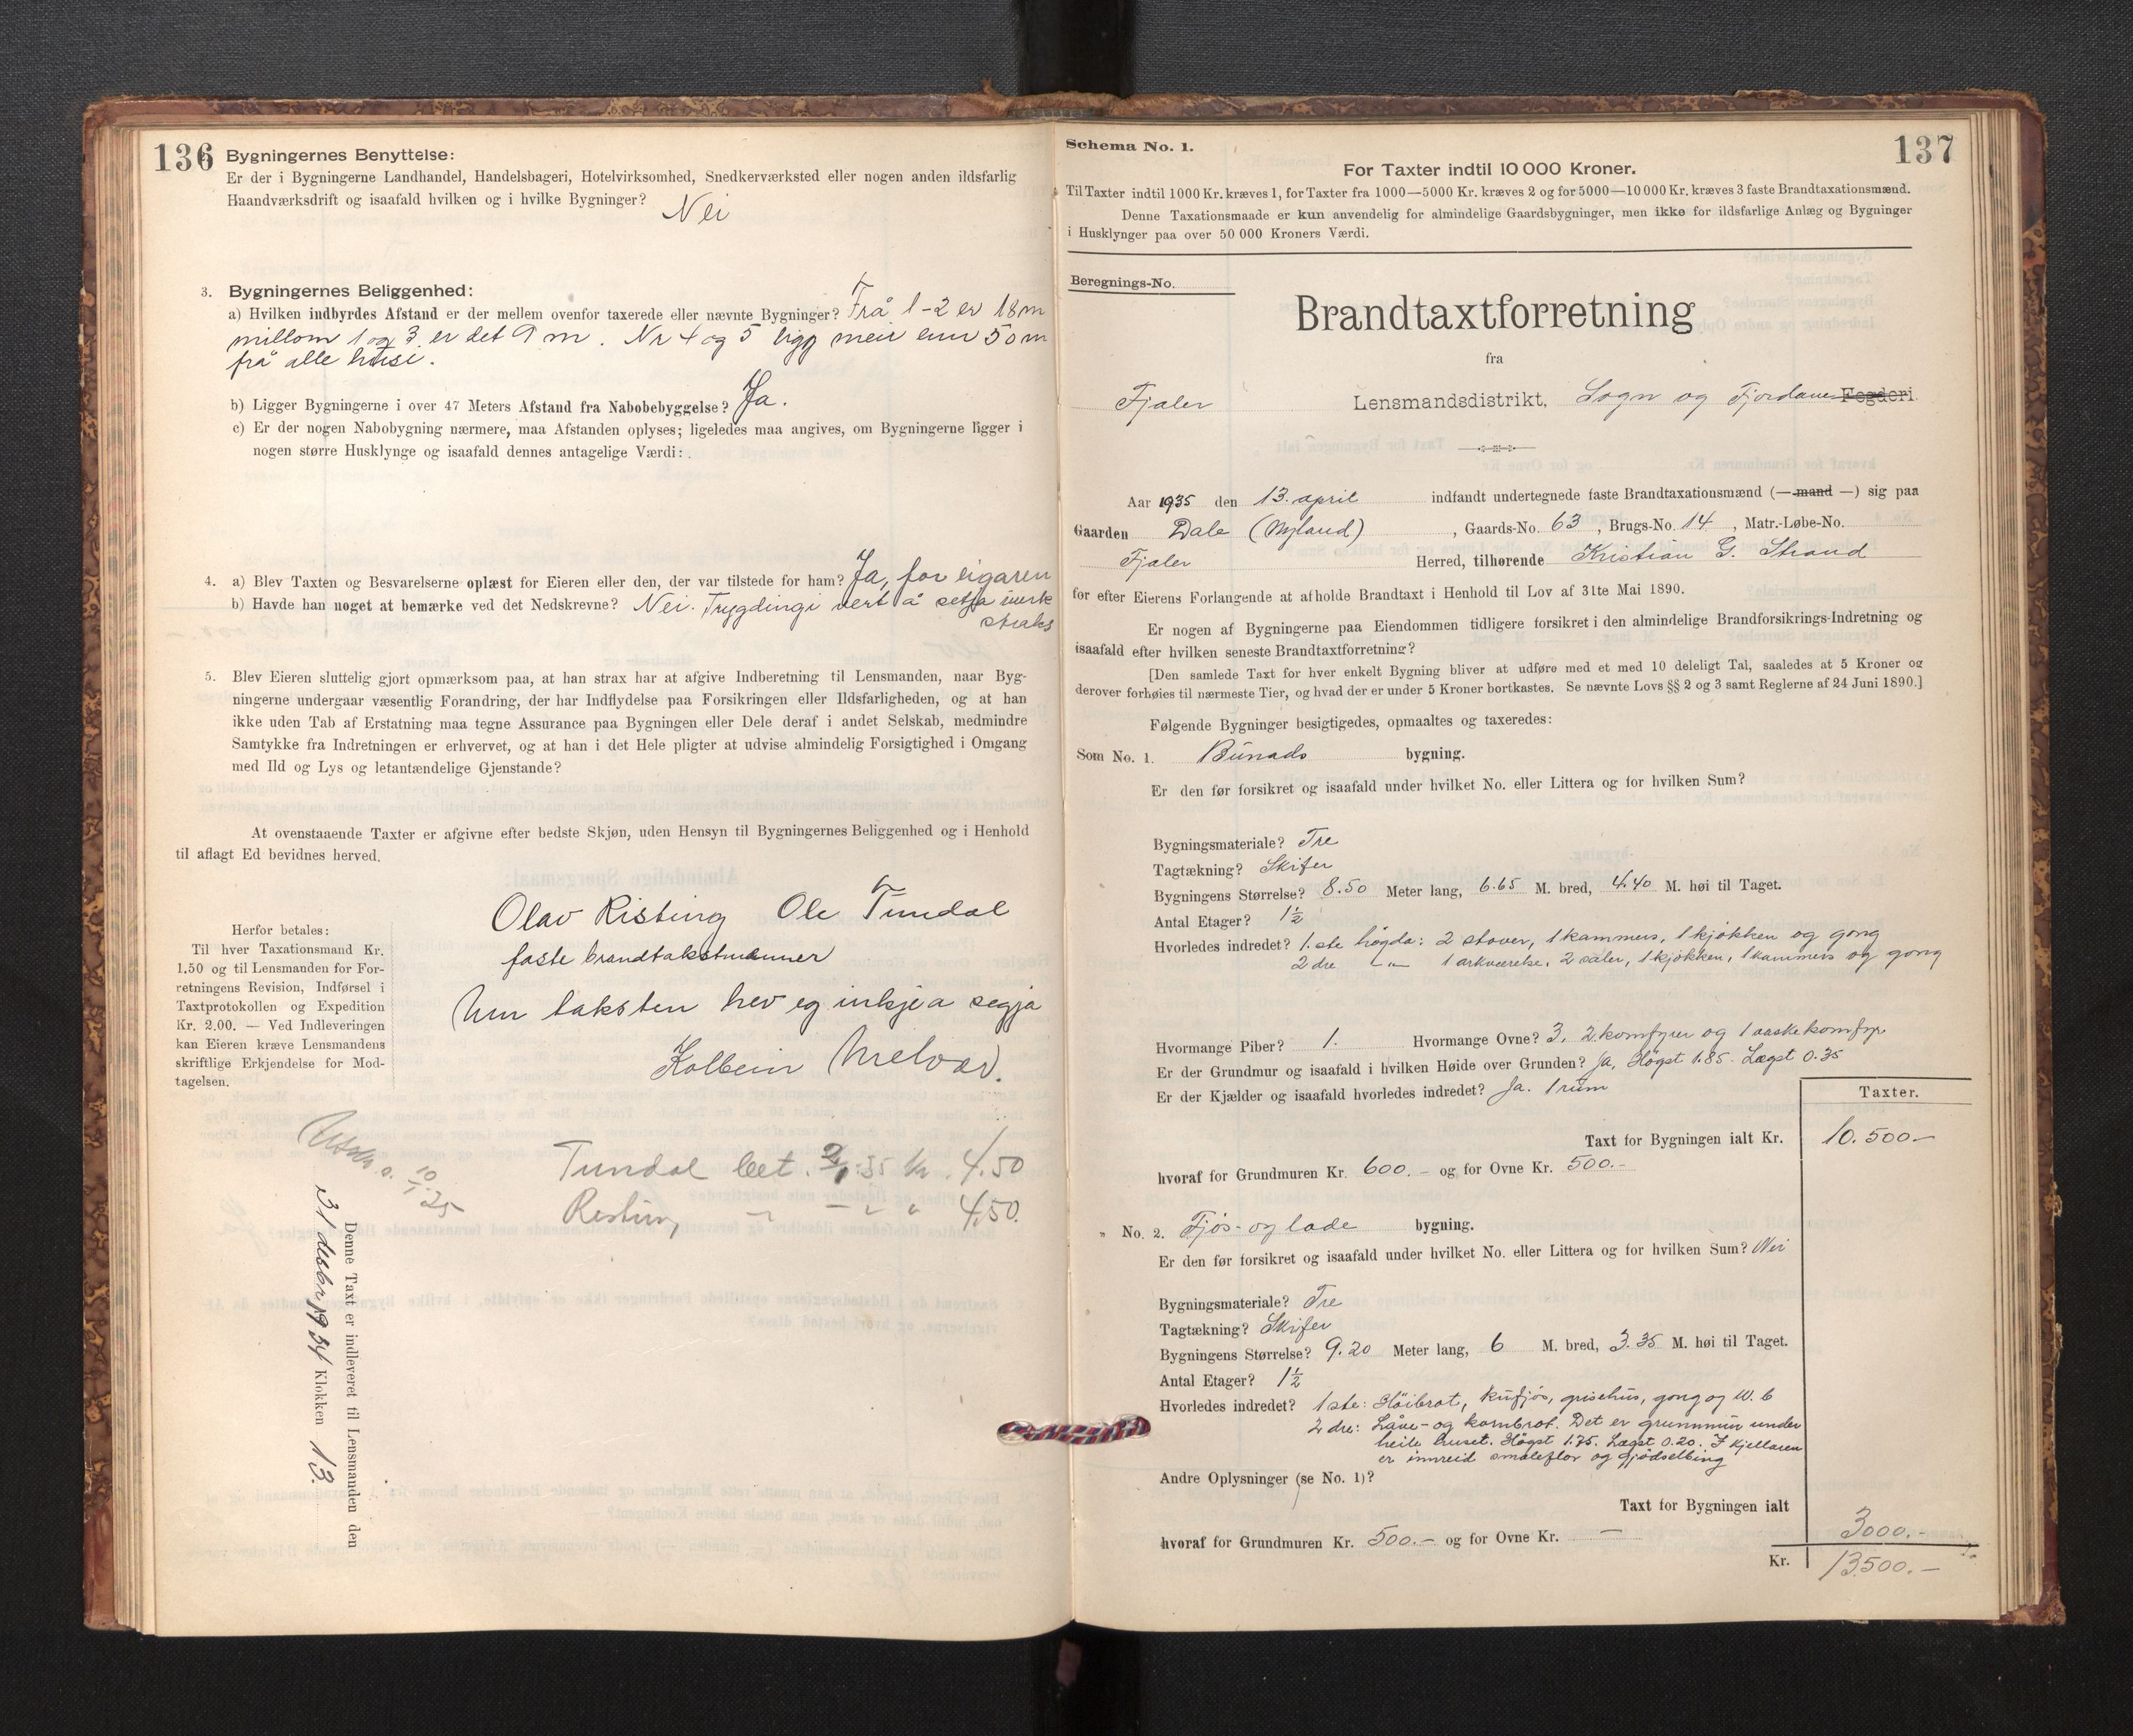 136
Bygningernes Benyttelse:
Er der i Bygningerne Landhandel, Handelsbageri, Hotelvirksomhed, Snedkerværksted eller nogen anden ildsfarlig
Haandværksdrift og isaafald hvilken og i hvilke Bygninger? Nei
3. Bygningernes Beliggenhed:
a) Hvilken indbyrdes Afstand er der mellem ovenfor taxerede eller nævnte Bygninger? Frå 1-2 er 18 m
millom 1 og 3 er det 9 m. Nr 4 og 5 ligg meir enn 50 m
frå alle husi.
b) Ligger Bygningerne i over 47 Meters Afstand fra Nabobebyggelse? Ja.
c) Er der nogen Nabobygning nærmere, maa Afstanden oplyses; ligeledes maa angives, om Bygningerne ligger i
nogen større Husklynge og isaafald dennes antagelige Værdi:
4. a) Blev Taxten og Besvarelserne oplæst for Eieren eller den, der var tilstede for ham? Ja, for eigaren
b) Havde han noget at bemærke ved det Nedskrevne? Nei. Trygdingi vert å setja iverk
straks
5. Blev Eieren sluttelig gjort opmærksom paa, at han strax har at afgive Indberetning til Lensmanden, naar Byg-
ningerne undergaar væsentlig Forandring, der har Indflydelse paa Forsikringen eller Ildsfarligheden, og at han
ikke uden Tab af Erstatning maa tegne Assurance paa Bygningen eller Dele deraf i andet Selskab, medmindre
Samtykke fra Indretningen er erhvervet, og at han i det Hele pligter at udvise almindelig Forsigtighed i Omgang
med Ild og Lys og letantændelige Gjenstande?
At ovenstaaende Taxter er afgivne efter bedste Skjøn, uden Hensyn til Bygningernes Beliggenhed og i Henhold
til aflagt Ed bevidnes herved.
Olav Risting Ole Tundal
faste brandtakstmenner
Um taksten hev eg inkje a segja
Kolbein Melvær.
Herfor betales:
Til hver Taxationsmand Kr.
1.50 og til Lensmanden for For-
retningens Revision, Indførsel i
Taxtprotokollen og Expedition
Kr. 2.00. — Ved Indleveringen
kan Eieren kræve Lensmandens
skriftlige Erkjendelse for Mod-
tagelsen.
Tundal bet. 35 kr. 4.50
Risting 4.50.
Denne Taxt er indleveret til Lensmanden den
31 desbr 1934 Klokken 13.
137
Schema No. 1.
For Taxter indtil 10 000 Kroner.
Til Taxter indtil 1000 Kr. kræves 1, for Taxter fra 1000—5000 Kr. kræves 2 og for 5000—10 000 Kr. kræves 3 faste Brandtaxationsmænd.
Denne Taxationsmaade er kun anvendelig for almindelige Gaardsbygninger, men ikke for ildsfarlige Anlæg og Bygninger
i Husklynger paa over 50 000 Kroners Værdi.
Beregnings-No.
Brandtaxtforretning
fra
Fjaler Lensmandsdistrikt, Sogn og Fjordane Fogderi.
Aar 1935 den 13. april indfandt undertegnede faste Brandtaxationsmænd (— mand —) sig paa
Gaarden Dale (Nyland), Gaards-No. 63, Brugs-No. 14, Matr.-Løbe-No.
Fjaler Herred, tilhørende Kristian G. Strand
for efter Eierens Forlangende at afholde Brandtaxt i Henhold til Lov af 31te Mai 1890.
Er nogen af Bygningerne paa Eiendommen tidligere forsikret i den almindelige Brandforsikrings-Indretning og
isaafald efter hvilken seneste Brandtaxtforretning?
[Den samlede Taxt for hver enkelt Bygning bliver at udføre med et med 10 deleligt Tal, saaledes at 5 Kroner og
derover forhøies til nærmeste Tier, og hvad der er under 5 Kroner bortkastes. Se nævnte Lovs §§ 2 og 3 samt Reglerne af 24 Juni 1890.]
Følgende Bygninger besigtigedes, opmaaltes og taxeredes:
Som No. 1. Bunads bygning.
Er den før forsikret og isaafald under hvilket No. eller Littera og for hvilken Sum?
Bygningsmateriale? Tre
Tagtækning? Skifer
Bygningens Størrelse? 8.50 Meter lang, 6.65 M. bred, 4.40 M. høi til Taget.
Antal Etager? 1½
Hvorledes indredet? 1.ste høgda: 2 stover, 1 kammers, 1 kjøkken og gong
2 dre —"— 1 arkværelse, 2 saler, 1 kjøkken, 1 kammers og gong
Hvormange Piber? 1. Hvormange Ovne? 3, 2 komfyrer og 1 vaskekomfyr
Er der Grundmur og isaafald i hvilken Høide over Grunden? Ja, Høgst 1.85. Lægst 0.35
Er der Kjælder og isaafald hvorledes indredet? Ja. 1 rum
Taxter.
Taxt for Bygningen ialt Kr. 10.500.—
hvoraf for Grundmuren Kr. 600.— og for Ovne Kr. 500.—
" No. 2. Fjøs- og lade bygning.
Er den før forsikret og isaafald under hvilket No. eller Littera og for hvilken Sum? Nei
Bygningsmateriale? Tre
Tagtækning? Skifer
Bygningens Størrelse? 9.20 Meter lang, 6 M. bred, 3.35 M. høi til Taget.
Antal Etager? 1½
Hvorledes indredet? 1ste: Høibrot, kufjøs, grisehus, gong og W. C
2 dre: Låve- og kornbrot. Det er grunnmur under
heile huset. Høgst 1.75. Lægst 0.20. I kjellaren
er innreid smaleflor og gjødselbing
Andre Oplysninger (se No. 1)?
Taxt for Bygningen ialt 3000.—
hvoraf for Grundmuren Kr. 500.— og for Ovne Kr. —
Kr. 13500.—